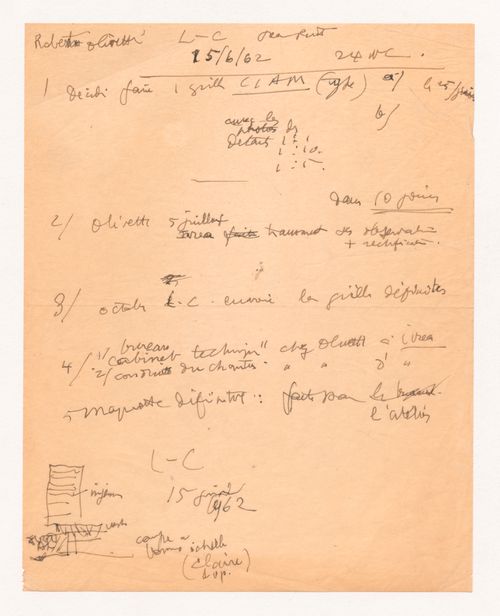 Roberto Olivetti L-C
15/6/62 24 NC.
1 décidé faire 1 grille CIAM (type) a/ le 25 juin
b/
avec les
photos de
détails 1 : 1
1 : 10
1 : 5
dans 10 jours
2/ Olivetti 5 juillet
Ivrea transmet ses observations
+ rectifications.
3/ octobre L-C envoie les grilles définitives
4/ 1/ bureau
"cabinet technique" chez Olivetti à Ivrea
2/ construction du chantier " " d' "
5 Maquette définitive : faite par
l'atelier
L-C
15 juin
1962
coupe a
bonne échelle
(Claire)